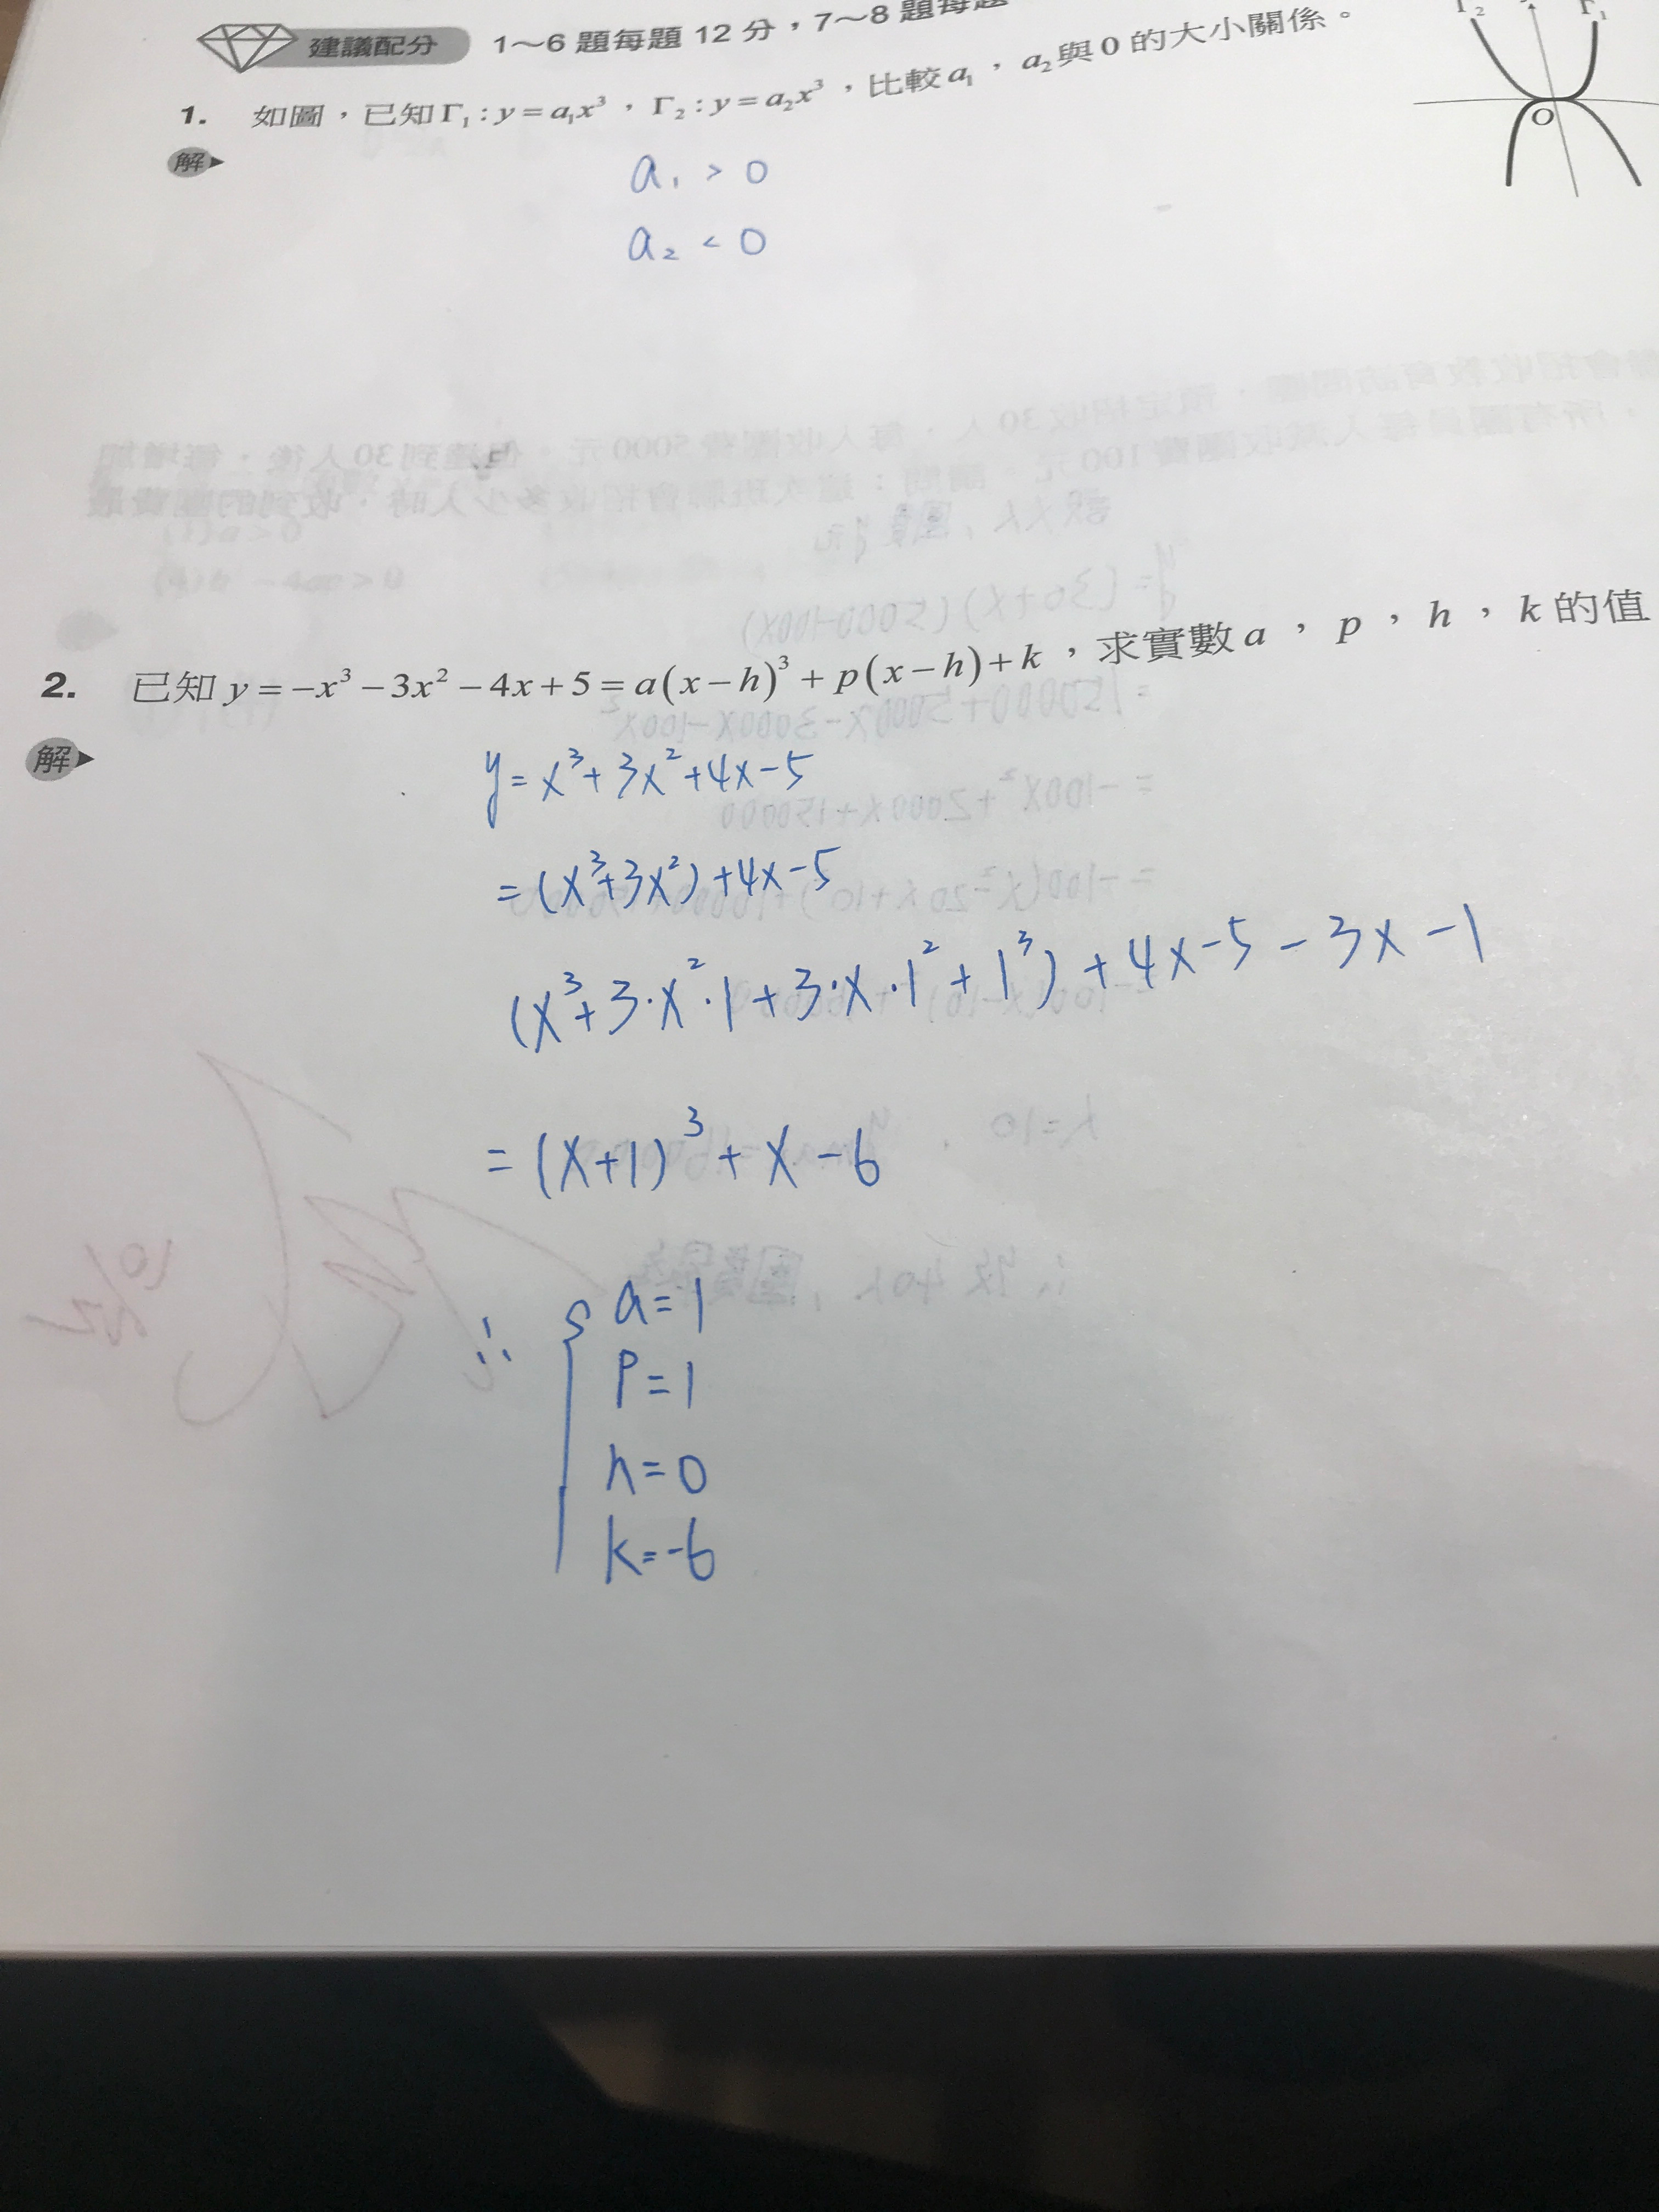 建議配分 1～6 題每題 12 分，7～8 題每題
1. 如圖，已知 Γ₁ : y = a₁x³ ， Γ₂ : y = a₂x³ ，比較 a₁ ， a₂ 與 0 的大小關係。
Γ₂ Γ₁
O
解
a₁ > 0
a₂ < 0
2. 已知 y = −x³ − 3x² − 4x + 5 = a(x − h)³ + p(x − h) + k ，求實數 a ， p ， h ， k 的值
解
y = x³ + 3x² + 4x − 5
= (x³ + 3x²) + 4x − 5
(x³ + 3·x²·1 + 3·x·1² + 1³) + 4x − 5 − 3x − 1
= (x+1)³ + x − 6
∴ { a = 1
P = 1
h = 0
k = −6